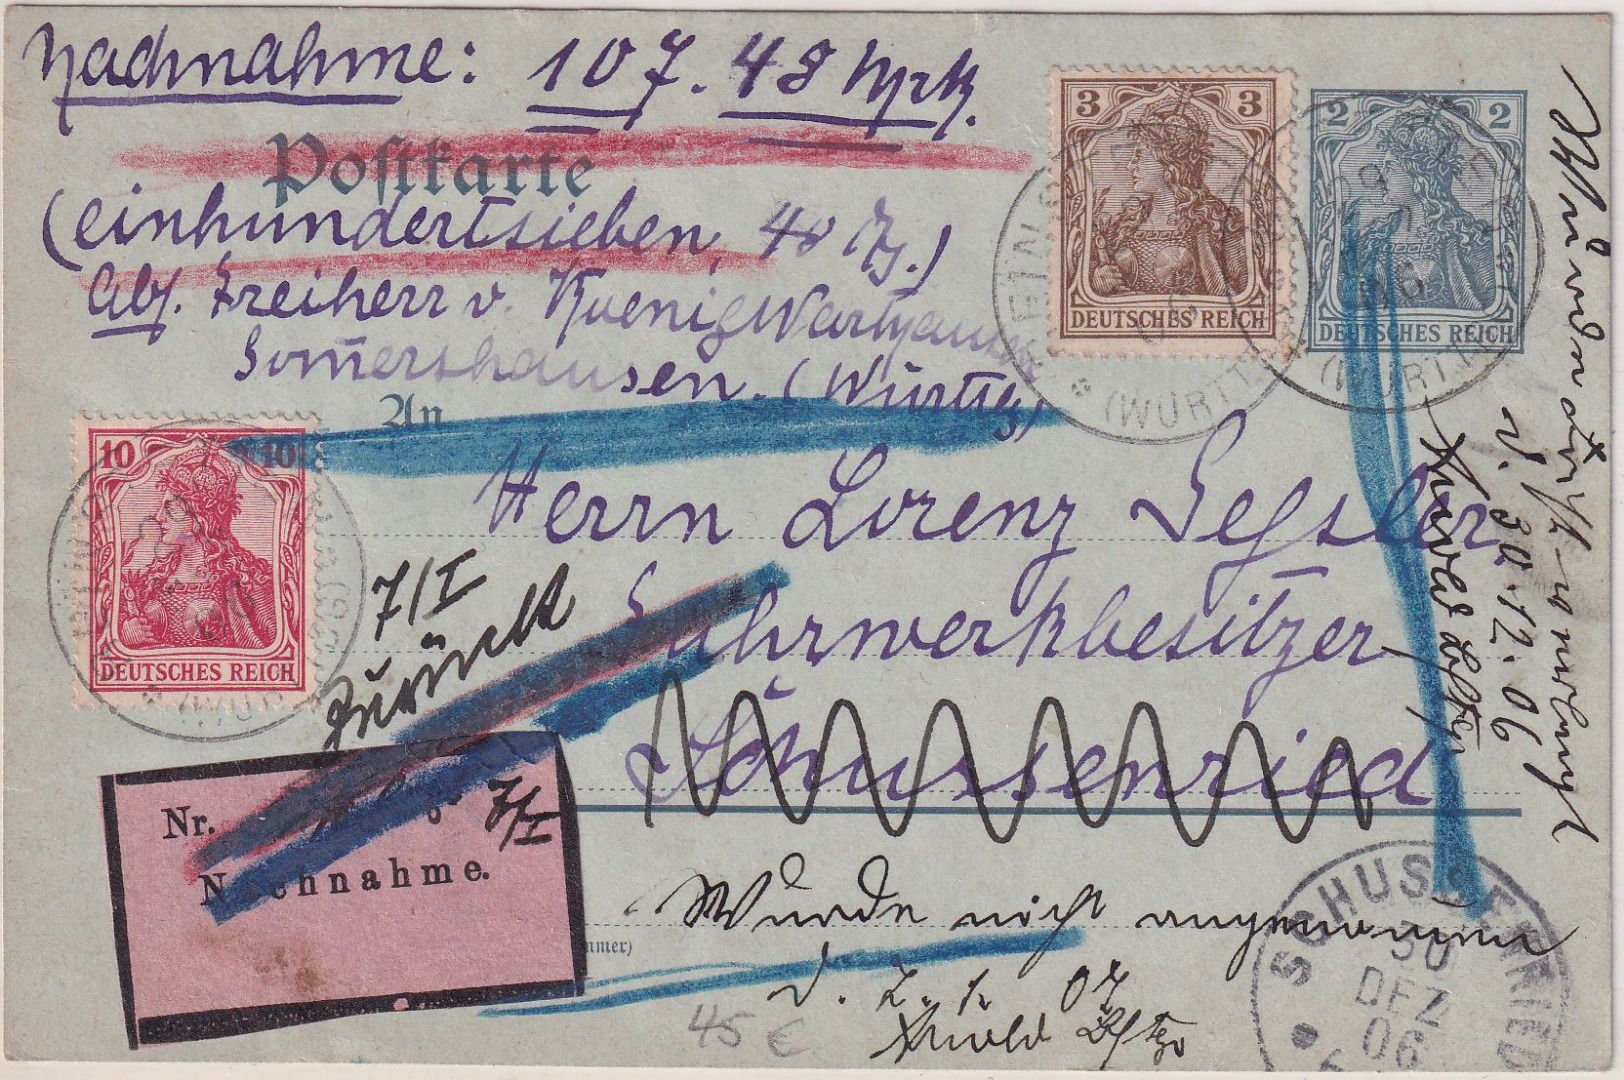 Nachnahme: 107.48 Mrk.
Postkarte
(einhundertsieben, 48 Pfg.)
Abs. Freiherr v. Koenig Warthausen
Sommershausen. (Württg)
3 3
DEUTSCHES REICH
2 2
DEUTSCHES REICH
(WÜRTT.)
(WÜRTT.)
An
10 10
DEUTSCHES REICH
Herrn Lorenz Gessler
Fuhrwerkbesitzer
Schussenried
7/I
Zurück
Nr.
7/I
Nachnahme.
d. 30.12.06
Wurde nicht angenommen
d. 7.1.07
SCHUSSENRIED
30
DEZ
06
45 €